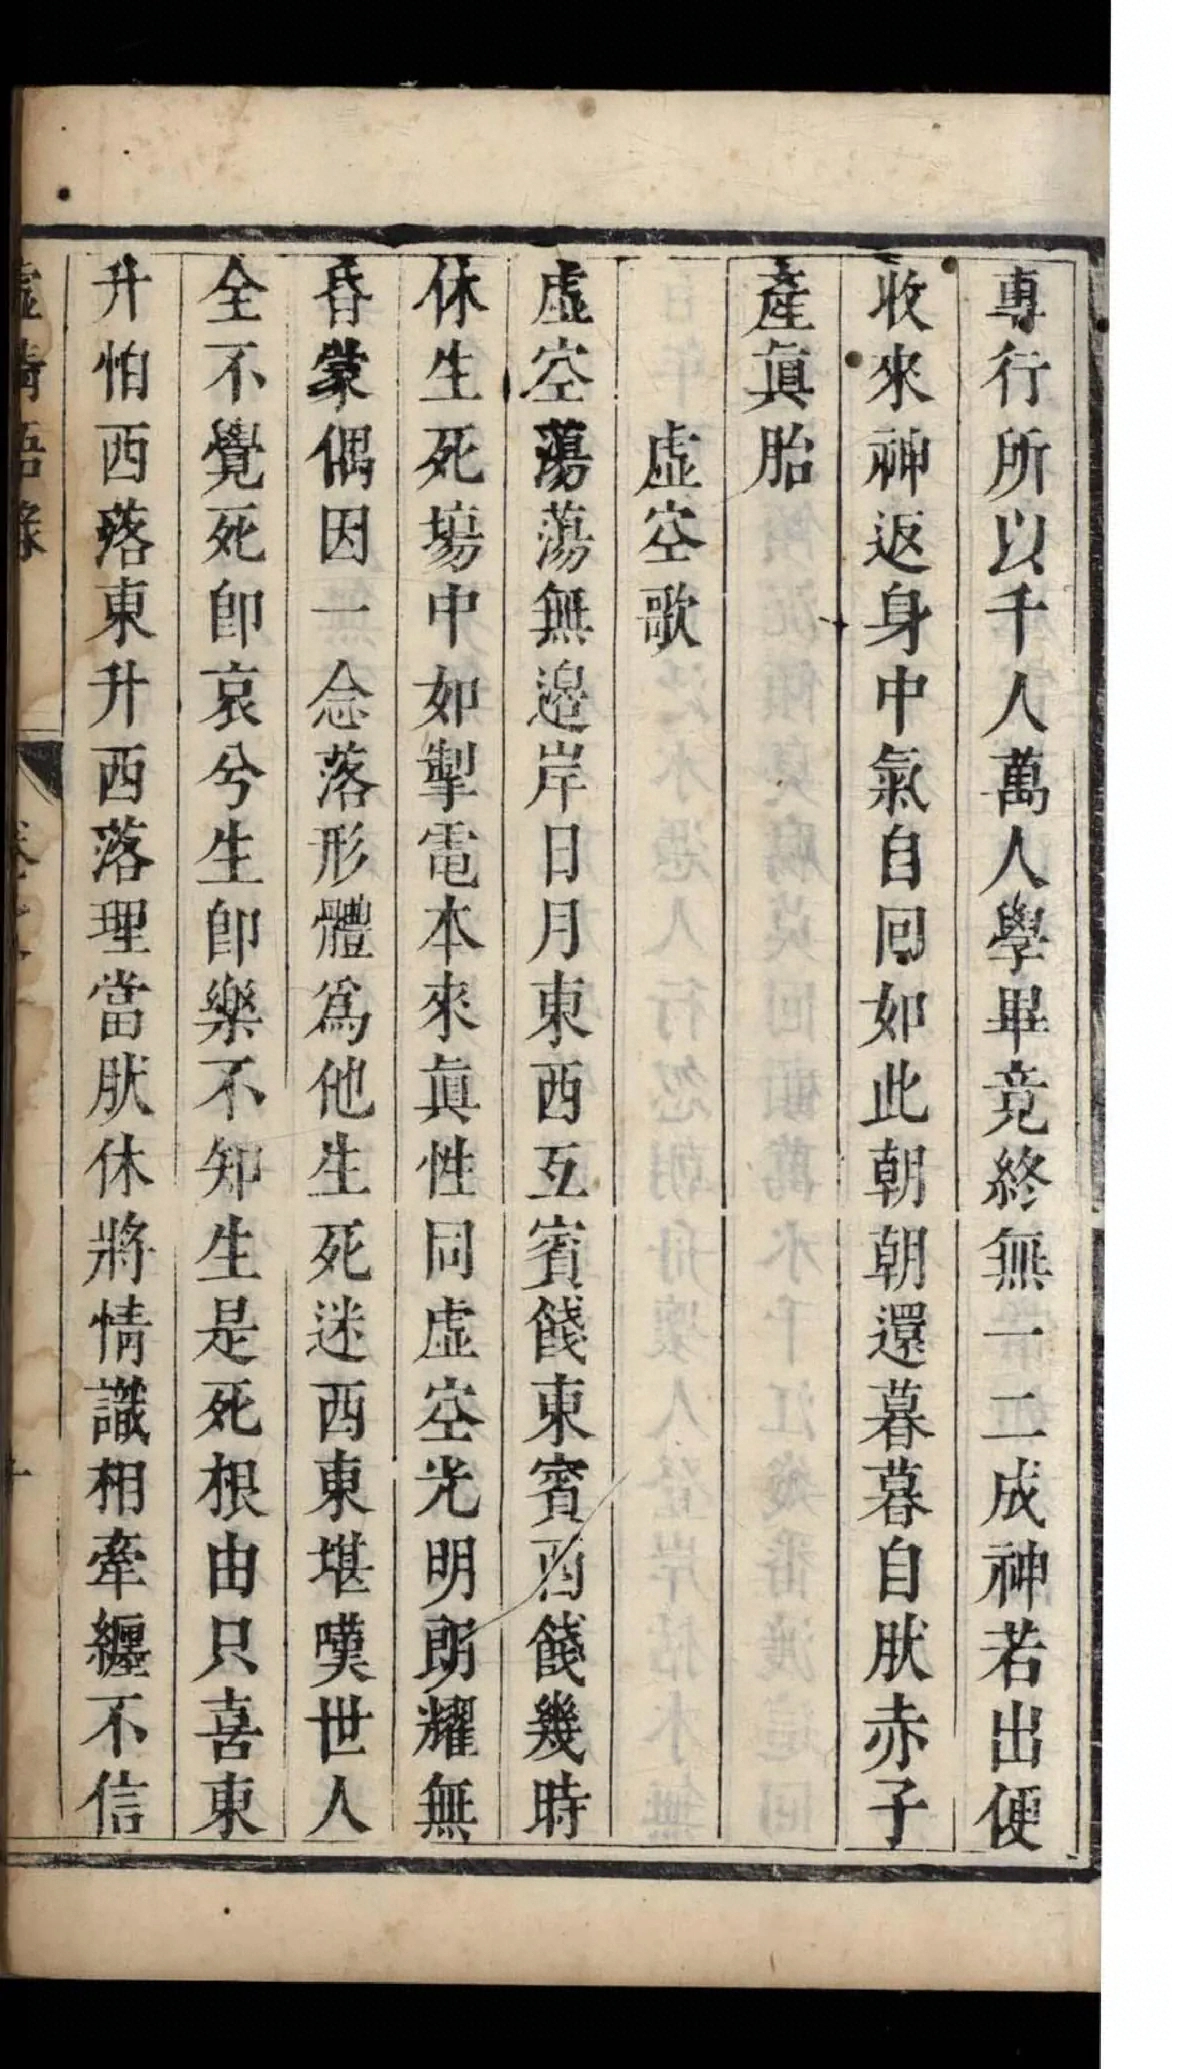 專行所以千人萬人學畢竟終無一二成神若出便
收來神返身中氣自回如此朝朝還暮暮自肰赤子
產眞胎
虛空歌
虛空蕩蕩無邊岸日月東西互賓餞東賓西餞幾時
休生死塲中如掣電本來眞性同虛空光明朗耀無
昏蒙偶因一念落形體爲他生死迷西東堪嘆世人
全不覺死卽哀兮生卽樂不知生是死根由只喜東
升怕西落東升西落理當肰休將情識相牽纏不信